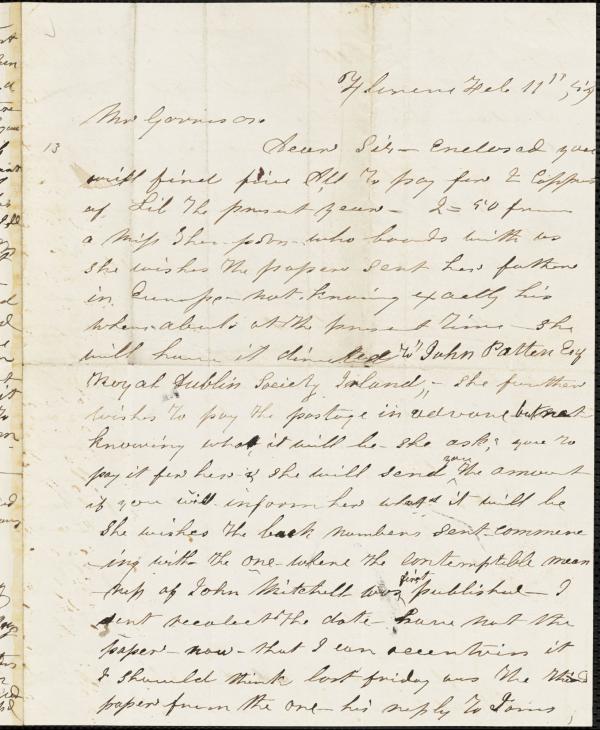 Florence Feb 11th, 54
Mr Garrison
13
Dear Sir - Enclosed you
will find five Dll to pay for 2 Coppes
of Lib the present year - 2=50 from
a Miss Thompson who boards with us
she wishes the paper sent her father
in Europe - not knowing exactly his
where abouts at the present time - she
will have it directed to John Patten Esq
Royal Dublin Society Irland, - she further
wishes to pay the postage in advance but not
knowing what it will be - she asks you to
pay it for her & she will send you the amount
if you will inform her what it will be
She wishes the back numbers sent commenc
-ing with the one where the contemptible mean
-ness of John Mitchell was first published - I
dont recolect the date - have not the
paper - now - that I can accertain it
I should think last friday was the third
paper from the one - his reply to